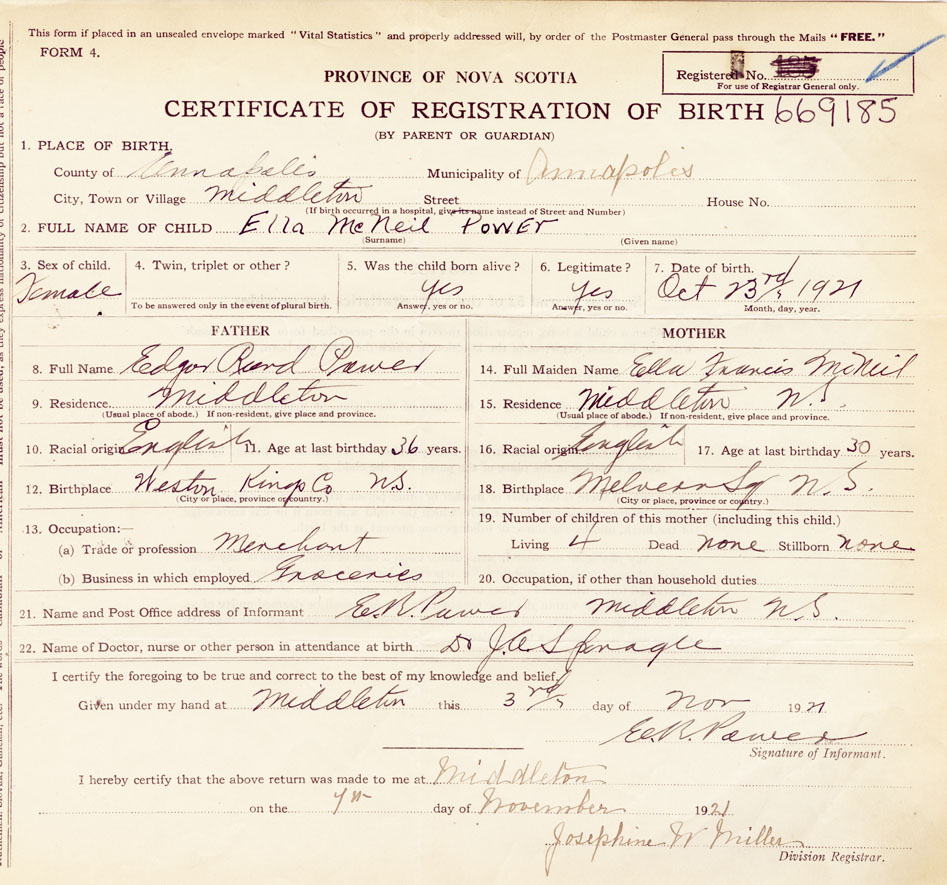 This form if placed in an unsealed envelope marked "Vital Statistics" and properly addressed will, by order of the Postmaster General pass through the Mails "FREE."
FORM 4.
PROVINCE OF NOVA SCOTIA
Registered No. 185
For use of Registrar General only.
CERTIFICATE OF REGISTRATION OF BIRTH 669185
(BY PARENT OR GUARDIAN)
1. PLACE OF BIRTH,
County of Annapolis Municipality of Annapolis
City, Town or Village Middleton Street House No.
(If birth occurred in a hospital, give its name instead of Street and Number)
2. FULL NAME OF CHILD Ella McNeil Power
(Surname) (Given name)
3. Sex of child. 4. Twin, triplet or other? 5. Was the child born alive? 6. Legitimate? 7. Date of birth.
Female yes yes Oct 23rd, 1921
To be answered only in the event of plural birth. Answer, yes or no. Answer, yes or no. Month, day, year.
FATHER MOTHER
8. Full Name Edgar Power 14. Full Maiden Name Ella Francis McNeil
9. Residence Middleton 15. Residence Middleton N.S.
(Usual place of abode.) If non-resident, give place and province. (Usual place of abode.) If non-resident, give place and province.
10. Racial origin English 11. Age at last birthday 36 years. 16. Racial origin English 17. Age at last birthday 30 years.
12. Birthplace Weston Kings Co N.S. 18. Birthplace Melvern Sq N.S.
(City or place, province or country.) (City or place, province or country.)
13. Occupation:— 19. Number of children of this mother (including this child.)
(a) Trade or profession Merchant Living 4 Dead none Stillborn none
(b) Business in which employed Groceries 20. Occupation, if other than household duties
21. Name and Post Office address of Informant E.R. Power Middleton N.S.
22. Name of Doctor, nurse or other person in attendance at birth Dr J.A. Sponagle
I certify the foregoing to be true and correct to the best of my knowledge and belief.
Given under my hand at Middleton this 3rd day of Nov 1921
E.R. Power
Signature of Informant.
I hereby certify that the above return was made to me at Middleton
on the day of November 1921
Josephine W Miller
Division Registrar.